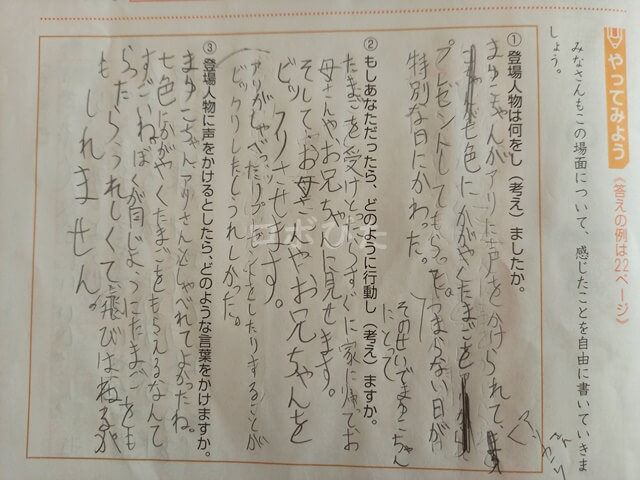 やってみよう
《答えの例は22ページ》
みなさんもこの場面について、感じたことを自由に書いていきま
しょう。
① 登場人物は何をし（考え）ましたか。
まゆこちゃんがアリに声をかけられて、
七色にかがやくたまごを
プレゼントしてもらって。つまらない日が
特別な日にかわった。
そのせいでまゆこちゃん
にとって
② もしあなただったら、どのように行動し（考え）ますか。
たまごを受けとったらすぐに家に帰ってお
母さんやお兄ちゃんに見せます。
そしてお母さんやお兄ちゃんを
ビックリさせます。
アリがしゃべったりプレゼントをしたりすることが
ビックリしたしうれしかった。
③ 登場人物に声をかけるとしたら、どのような言葉をかけますか。
まゆこちゃん、アリさんとしゃべれてよかったね。
七色にかがやくたまごをもらえるなんて
すごいね。ぼくが同じようにたまごをも
らったらうれしくて飛びはねるか
もしれません。
ロボぴた